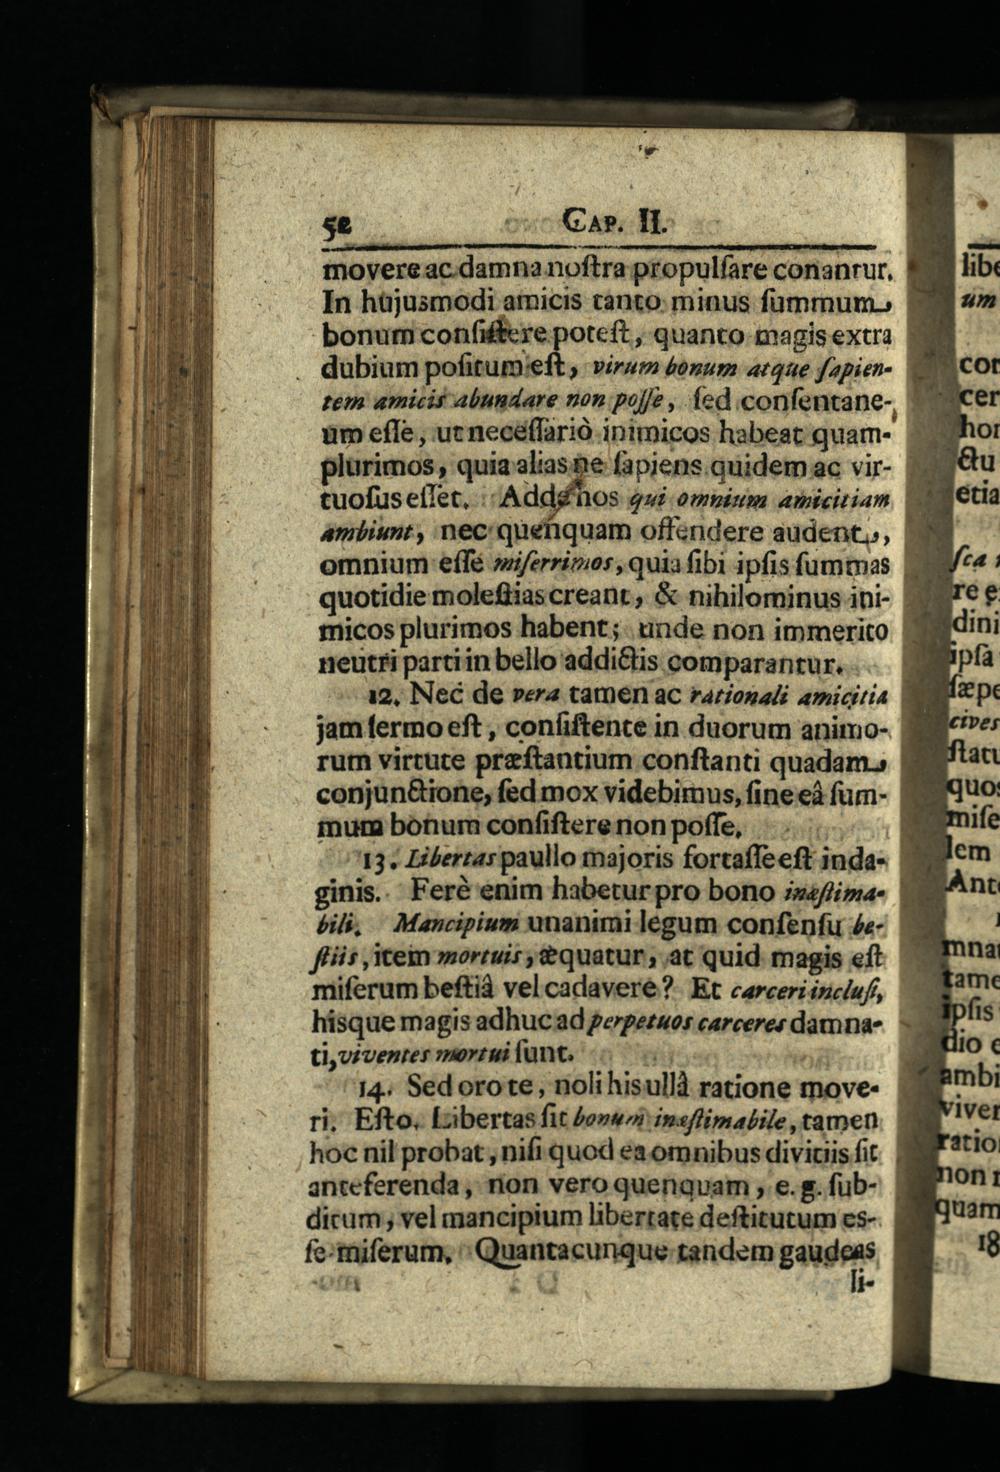 52 CAP. II.
movere ac damna noſtra propulſare conantur.
In hujusmodi amicis tanto minus ſummum
bonum conſiſtere poteſt, quanto magis extra
dubium poſitum eſt, virum bonum atque ſapien-
tem amicis abundare non poſſe, ſed conſentane-
um eſſe, ut neceſſariò inimicos habeat quam-
plurimos, quia alias ne ſapiens quidem ac vir-
tuoſus eſſet. Adde hos qui omnium amicitiam
ambiunt, nec quenquam offendere audent,
omnium eſſe miſerrimos, quia ſibi ipſis ſummas
quotidie moleſtias creant, & nihilominus ini-
micos plurimos habent; unde non immerito
neutri parti in bello addictis comparantur.
12. Nec de vera tamen ac rationali amicitia
jam ſermo eſt, conſiſtente in duorum animo-
rum virtute præſtantium conſtanti quadam
conjunctione, ſed mox videbimus, ſine eâ ſum-
mum bonum conſiſtere non poſſe.
13. Libertas paullo majoris fortaſſe eſt inda-
ginis. Ferè enim habetur pro bono inæſtima-
bili. Mancipium unanimi legum conſenſu be-
ſtiis, item mortuis, æquatur, at quid magis eſt
miſerum beſtiâ vel cadavere? Et carceri incluſi,
hisque magis adhuc ad perpetuos carceres damna-
ti, viventes mortui ſunt.
14. Sed oro te, noli his ullâ ratione move-
ri. Eſto. Libertas ſit bonum inæſtimabile, tamen
hoc nil probat, niſi quod ea omnibus divitiis ſit
anteferenda, non vero quenquam, e. g. ſub-
ditum, vel mancipium libertate deſtitutum es-
ſe miſerum. Quantacunque tandem gaudeas
li-
libe
um
cer
hor
ctu
etia
ſca
re e
dini
ipſa
ſæpe
cives
ſtatu
quos
miſe
lem
Ante
mnat
tame
ipſis
dio e
ambi
viver
ratio
non
quam
18